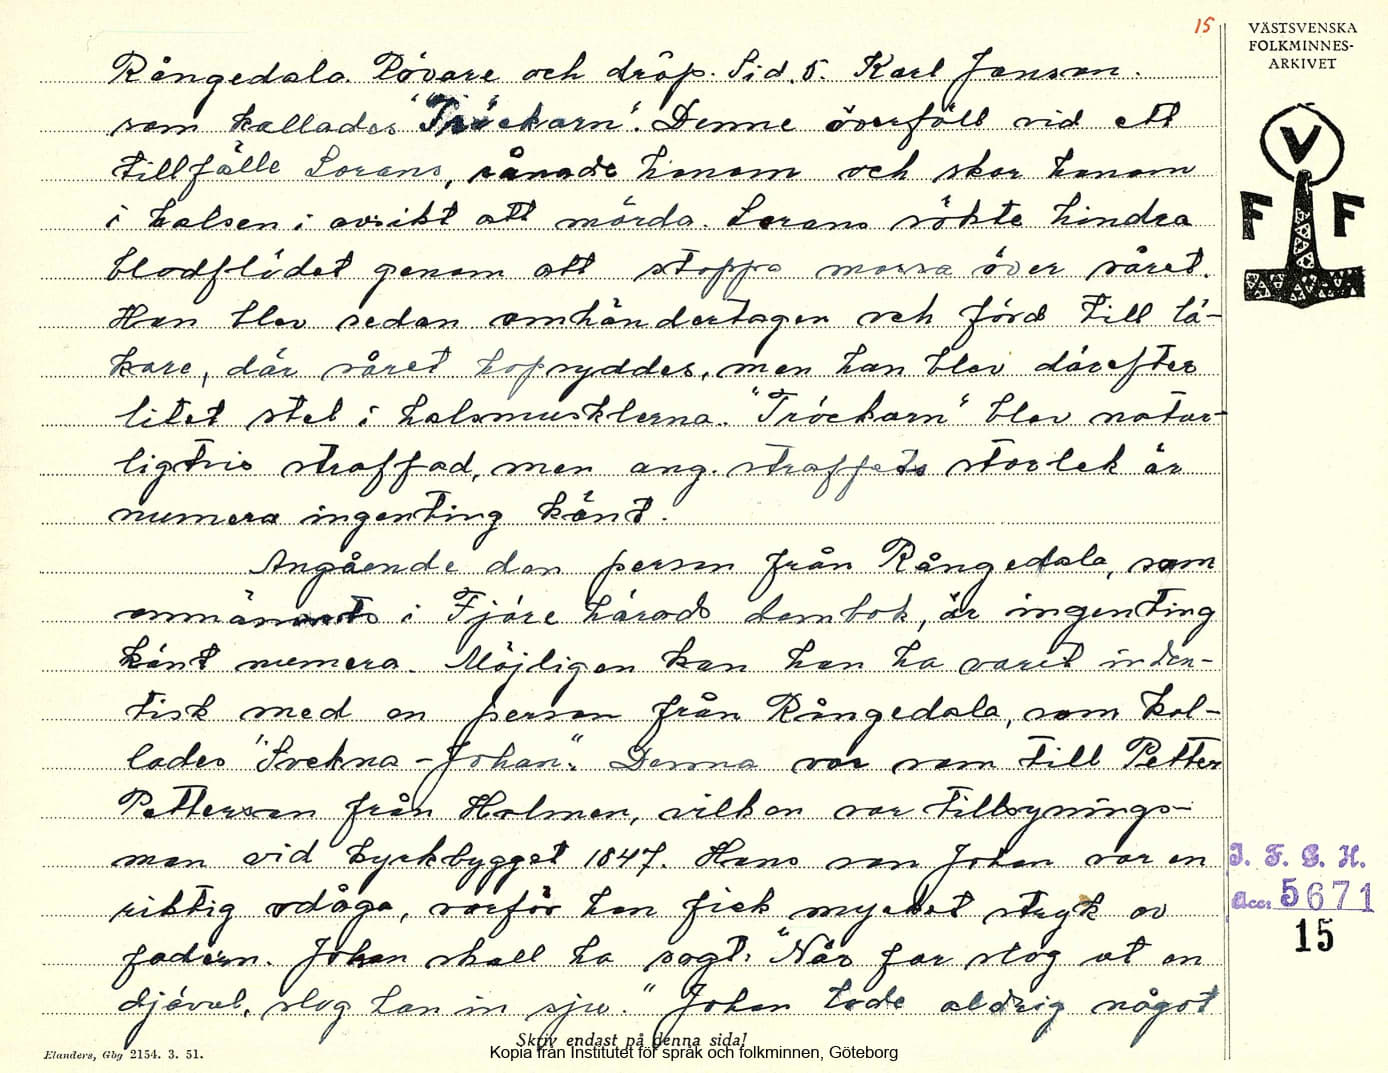 15
VÄSTSVENSKA
FOLKMINNES-
ARKIVET
V
F F
Rångedala. Rövare och dråp. Sid. 5. Karl Janson.
som kallades "Tröckarn". Denne överföll vid ett
tillfälle Lorans, rånade honom och skar honom
i halsen i avsikt att mörda. Lorans sökte hindra
blodflödet genom att stoppa mossa över såret.
Han blev sedan omhändertagen och förd till lä-
kare, där såret hopsyddes, men han blev därefter
litet stel i halsmusklerna. "Tröckarn" blev natur-
ligtvis straffad, men ang. straffets storlek är
numera ingenting känt.
Angående den person från Rångedala, som
omnämnts i Fjäre härads dombok, är ingenting
känt numera. Möjligen kan han ha varit inden-
tisk med en person från Rångedala, som kal-
lades "Svekna-Johan". Denna var son till Petter
Petterson från Holmen, vilken var tillsynings-
man vid kyrkbygget 1847. Hans son Johan var en
riktig odåga, varför han fick mycket stryk av
fadern. Johan skall ha sagt: "När far slog ut en
djävul, slog han in sju." Johan hade aldrig något
I. F. G. H.
Acc. 5671
15
Skriv endast på denna sida!
Elanders, Gbg 2154. 3. 51.
Kopia från Institutet för språk och folkminnen, Göteborg